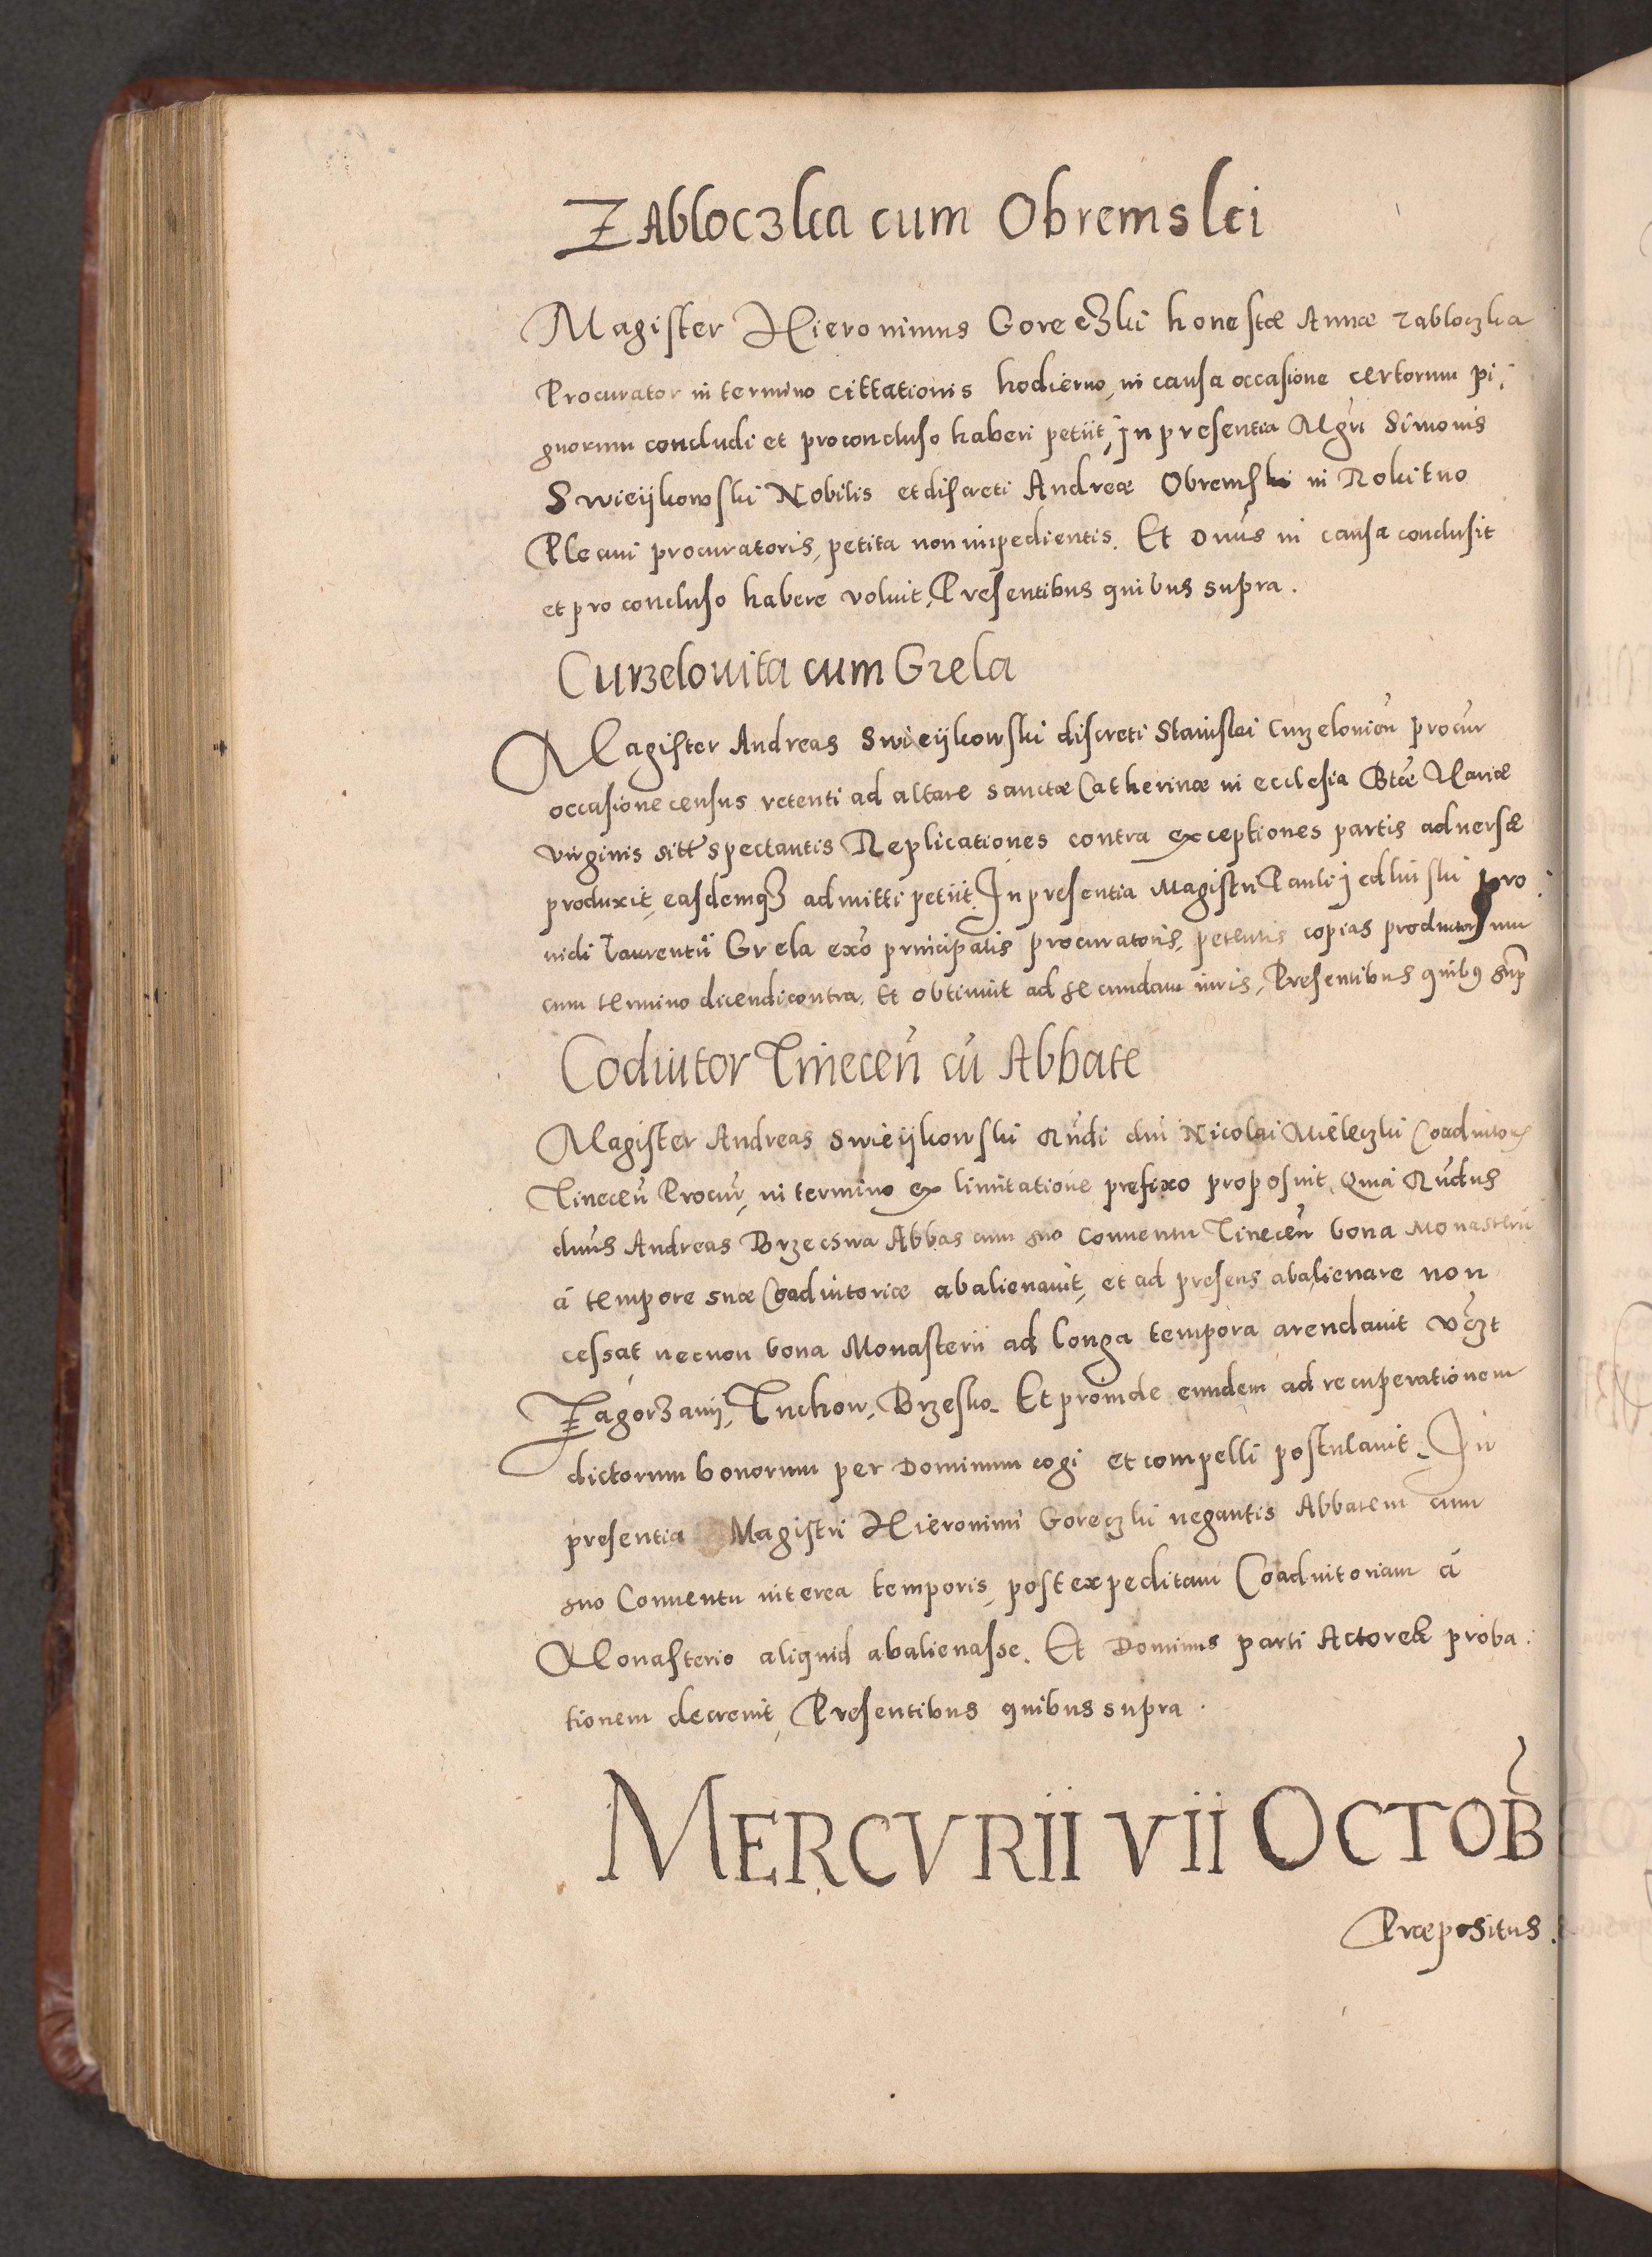 ZAbloczka cum Obremski
Magister Hieronimus Goreczki honestæ Annæ Zabloczka
Procurator in termino cittationis hodierno, in causa occasione certorum pi,
gnorum concludi et pro concluso haberi petiit, in presentia Mgri Simonis
Swieijkowski Nobilis et discreti Andreæ Obremski in Rokitno
Plebani procuratoris, petita non impedientis. Et Dnus in causa conclusit
et pro concluso habere voluit, Presentibus quibus supra.
Curzelovita cum Grela
Magister Andreas Swieijkowski discreti Stanislai Curzelovien procur
occasione census retenti ad altare sanctæ Catherinæ in ecclesia Btæ Mariæ
virginis sitt spectantis Replicationes contra exceptiones partis adversæ
produxit, easdemq3 admitti petiit. In presentia Magistri Pauli Jedlinski pro
uidi Laurentii Grela exo principalis procuratoris, petentis copias productorum
cum termino dicendi contra. Et obtinuit ad secundam iuris, Presentibus quib9 sup
Codiutor Tinecen cu Abbate
Magister Andreas Swieijkowski Rndi dni Nicolai Mieleczki Coadiutoris
Tinecen Procur, in termino ex limitatione prefixo proposuit, Quia Rndus
dnus Andreas Brzecswa Abbas cum suo Conuentu Tinecen bona Monasterii
á tempore suæ Coadiutoriæ abalienauit, et ad presens abalienare non
cessat necnon bona Monasterii ad longa tempora arendauit vczt
Zagorzanij, Tuchow, Brzesko. Et proinde eundem ad recuperationem
dictorum bonorum per Dominum cogi et compelli postulauit. In
presentia Magistri Hieronimi Goreczki negantis Abbatem cum
suo Conuentu interea temporis, post expeditam Coadiutoriam á
Monasterio aliquid abalienasse. Et Dominus parti Actoreæ proba:
tionem decreuit, Presentibus quibus supra.
MERCVRII VII OCTOB
Præpositus.